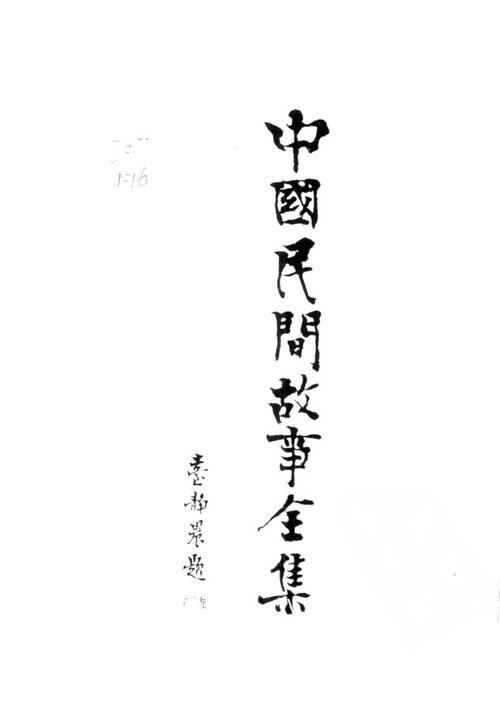 中國民間故事全集
臺靜農題
1:16